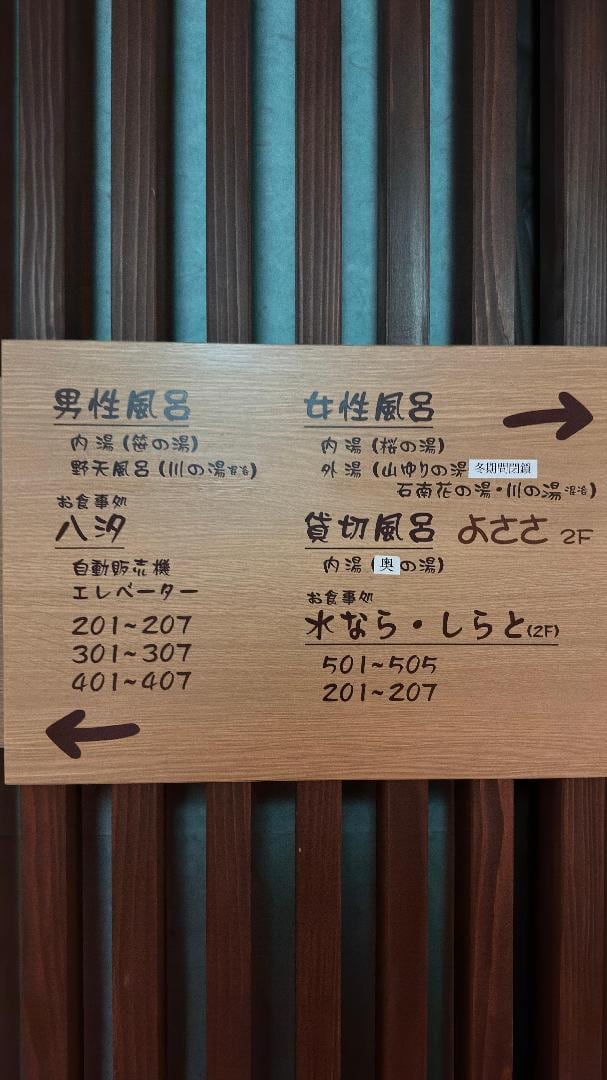 男性風呂
内湯 (笹の湯)
野天風呂 (川の湯混浴)
お食事処
八汐
自動販売機
エレベーター
201~207
301~307
401~407
女性風呂
内湯 (桜の湯)
外湯 (山ゆりの湯 冬期間閉鎖
石南花の湯・川の湯混浴)
貸切風呂 よささ 2F
内湯 (奥の湯)
お食事処
水なら・しらと(2F)
501~505
201~207